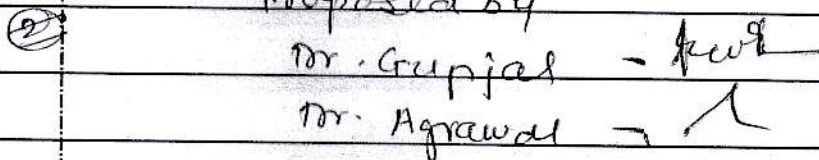 Proposed by
② Dr. Gunjal -
Dr. Agrawal -